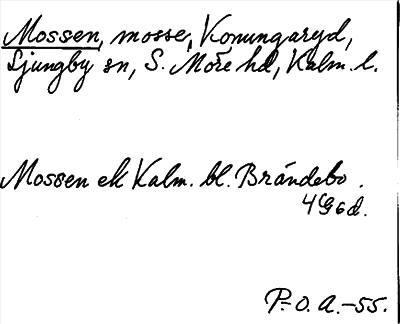 Mossen, mosse, Konungaryd,
Ljungby sn, S. Möre hd, Kalm. l.
Mossen ek Kalm. bl. Brändebo.
4G6d.
P.-O. A.-55.